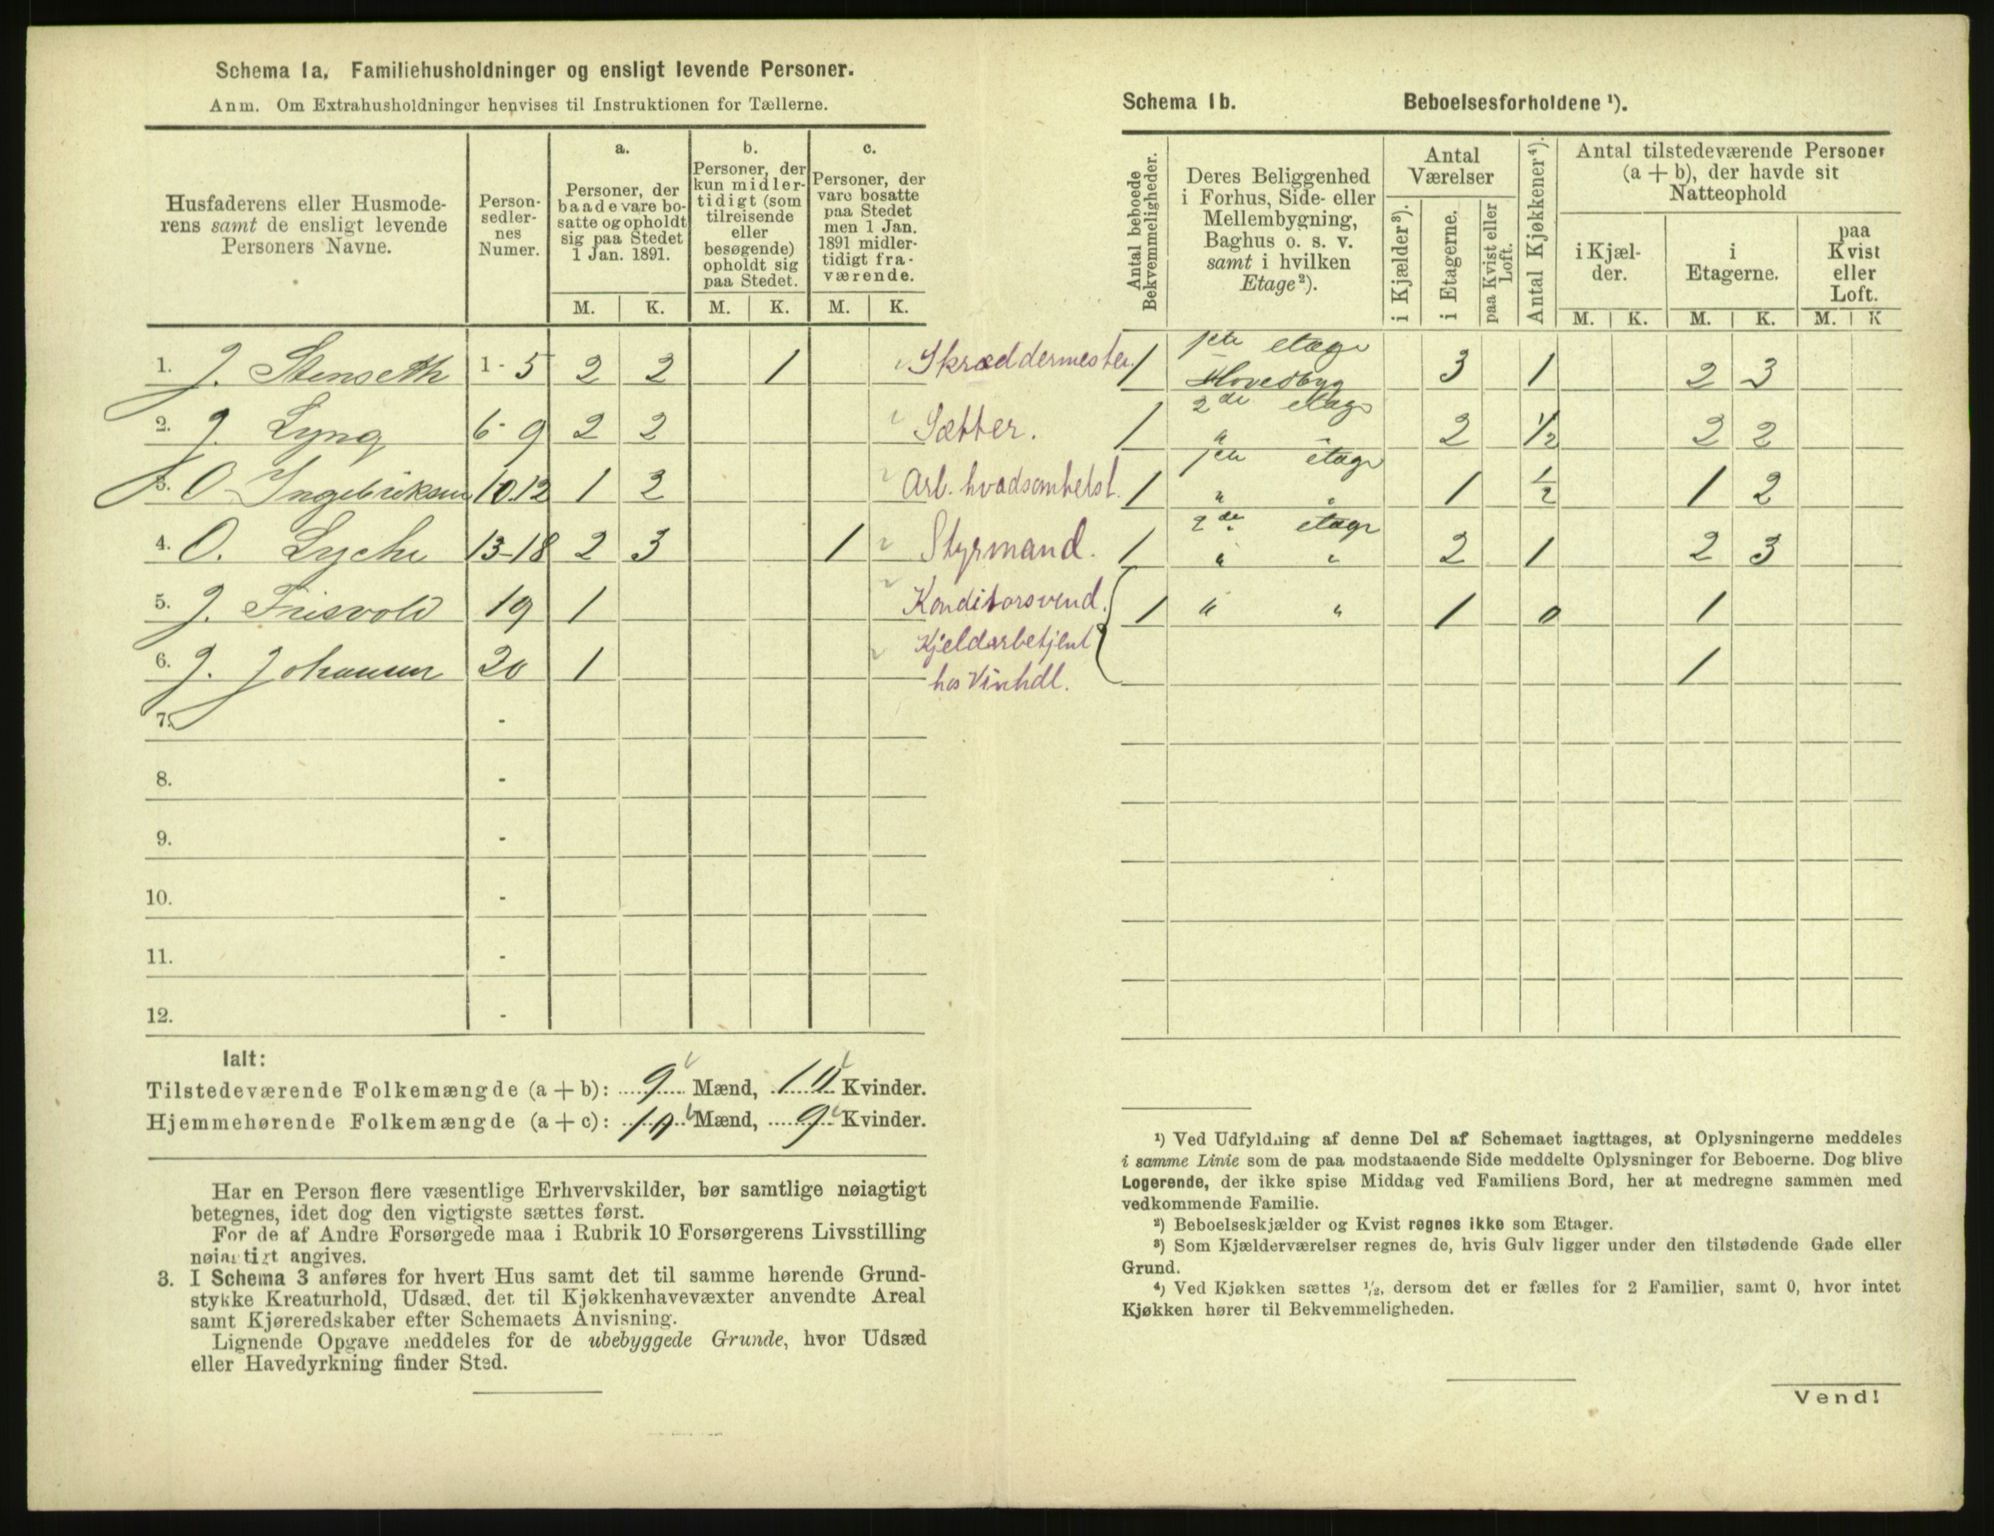 Schema 1a. Familiehusholdninger og ensligt levende Personer.
Anm. Om Extrahusholdninger henvises til Instruktionen for Tællerne.
Husfaderens eller Husmode-
rens samt de ensligt levende
Personers Navne.
Person-
sedler-
nes
Numer.
a.
Personer, der
baade vare bo-
satte og opholdt
sig paa Stedet
1 Jan. 1891.
b.
Personer, der
kun midler-
tidigt (som
tilreisende
eller
besøgende)
opholdt sig
paa Stedet.
c.
Personer, der
vare bosatte
paa Stedet
men 1 Jan.
1891 midler-
tidigt fra-
værende.
M. K. M. K. M. K.
1. J. Stenseth 1-5 2 2 1 Skræddermester
2. J. Lyng 6-9 2 2 Sætter.
3. O Ingebriksen 10.12 1 2 Arb. hvadsomhelst.
4. O. Lyche 13-18 2 3 1 Styrmand.
5. J. Frisvold 19 1 Konditorsvend.
6. J. Johansen 20 1 Kjeldarbetjent
hos Vinhdl.
7. -
8. -
9. -
10. -
11. -
12. -
Ialt:
Tilstedeværende Folkemængde (a + b): 9 Mænd, 10 Kvinder.
Hjemmehørende Folkemængde (a + c): 10 Mænd, 9 Kvinder.
Har en Person flere væsentlige Erhvervskilder, bør samtlige nøiagtigt
betegnes, idet dog den vigtigste sættes først.
For de af Andre Forsørgede maa i Rubrik 10 Forsørgerens Livsstilling
nøiagtigt angives.
3. I Schema 3 anføres for hvert Hus samt det til samme hørende Grund-
stykke Kreaturhold, Udsæd, det til Kjøkkenhavevæxter anvendte Areal
samt Kjøreredskaber efter Schemaets Anvisning.
Lignende Opgave meddeles for de ubebyggede Grunde, hvor Udsæd
eller Havedyrkning finder Sted.
Schema 1b. Beboelsesforholdene ¹).
Antal beboede
Bekvemmeligheder.
Deres Beliggenhed
i Forhus, Side- eller
Mellembygning,
Baghus o. s. v.
samt i hvilken
Etage²).
Antal
Værelser
i Kjælder³).
i Etagerne.
paa Kvist eller
Loft.
Antal Kjøkkener⁴).
Antal tilstedeværende Personer
(a + b), der havde sit
Natteophold
i Kjæl-
der.
i
Etagerne.
paa
Kvist
eller
Loft.
M. K. M. K. M. K
1ste etage
1 Hovedbyg 3 1 2 3
2de etage
1 " " 2 1/2 2 2
1ste etage
1 " " 1 1/2 1 2
2de etage
1 " " 2 1 2 3
1 " " 1 0 1
1
¹) Ved Udfyldning af denne Del af Schemaet iagttages, at Oplysningerne meddeles
i samme Linie som de paa modstaaende Side meddelte Oplysninger for Beboerne. Dog blive
Logerende, der ikke spise Middag ved Familiens Bord, her at medregne sammen med
vedkommende Familie.
²) Beboelseskjælder og Kvist regnes ikke som Etager.
³) Som Kjælderværelser regnes de, hvis Gulv ligger under den tilstødende Gade eller
Grund.
⁴) Ved Kjøkken sættes ¹/₂, dersom det er fælles for 2 Familier, samt 0, hvor intet
Kjøkken hører til Bekvemmeligheden.
Vend!